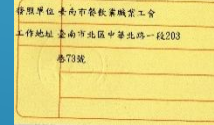 發照單位 臺南市餐飲業職業工會
工作地址 臺南市北區中華北路一段203
巷73號